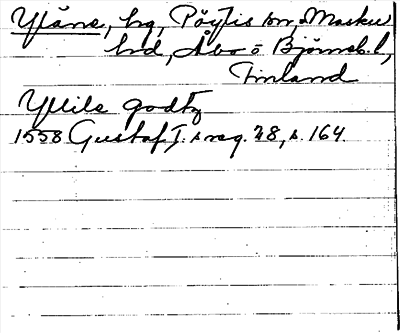 Yläne, hg, Pöytis sn, Masku
hd, Åbo o Björneb. l,
Finland
Yllile godtz
1558 Gustaf I:s reg. 28, s. 164